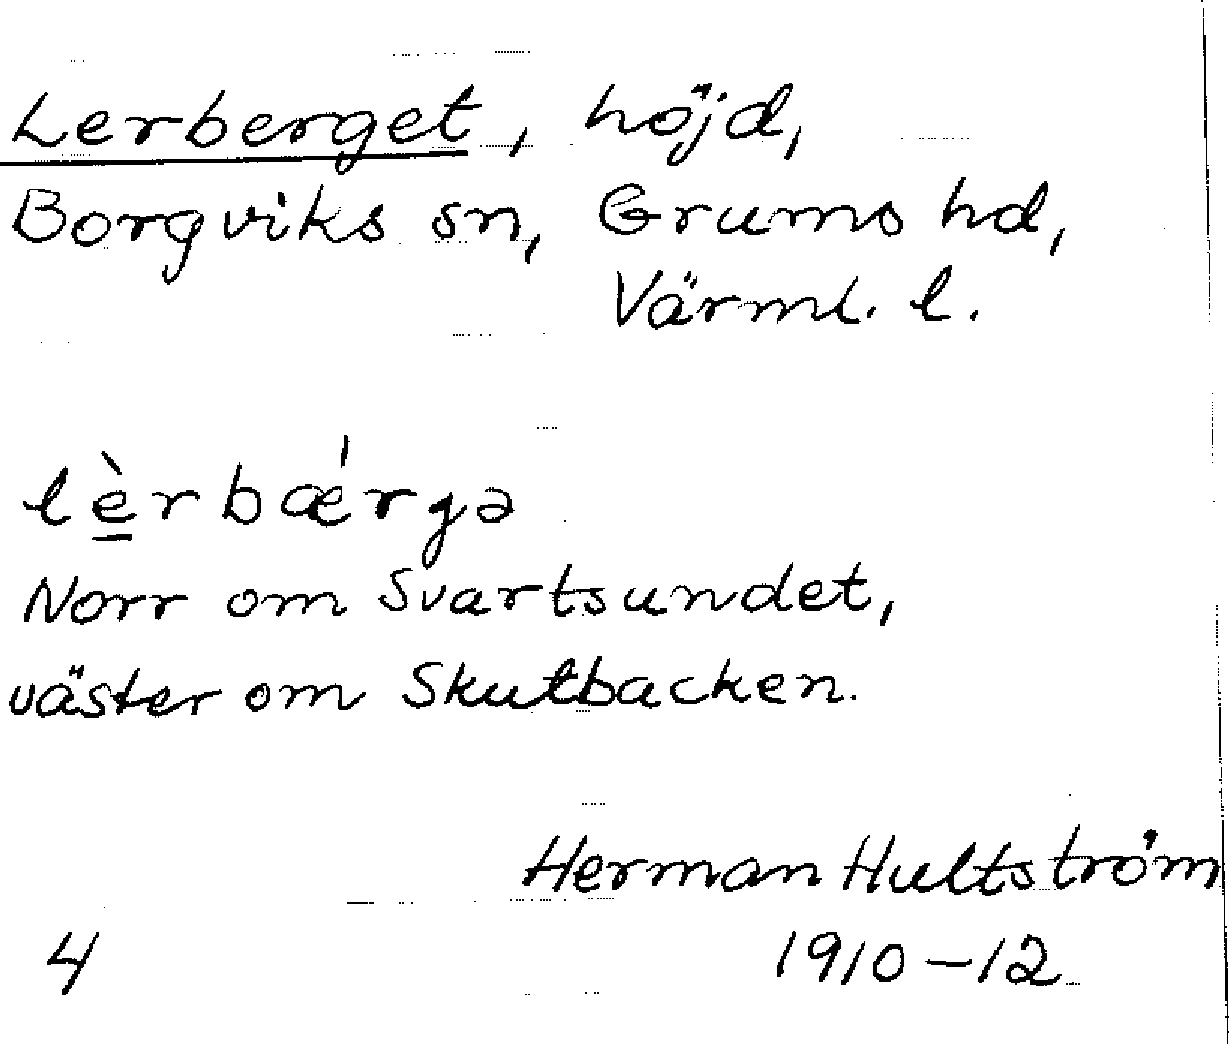 Lerberget, höjd,
Borgviks sn, Grums hd,
Värml. l.
lè̠rbǽrgə
Norr om Svartsundet,
väster om Skutbacken.
Herman Hultström
4 1910-12